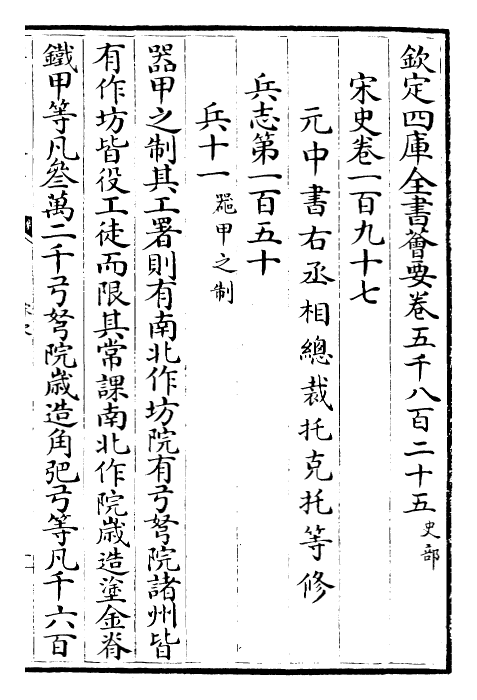 欽定四庫全書薈要卷五千八百二十五 史部
宋史卷一百九十七
元中書右丞相總裁托克托等修
兵志第一百五十
兵十一 器甲之制
器甲之制其工署則有南北作坊院有弓弩院諸州皆
有作坊皆役工徒而限其常課南北作院歲造塗金脊
鐵甲等凡叄萬二千弓弩院歲造角弝弓等凡千六百